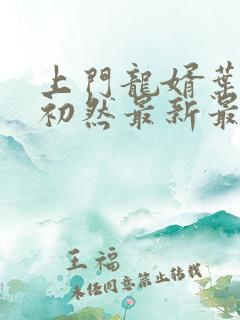 上門龍婿葉
初然最新最
王福
未经同意禁止转载